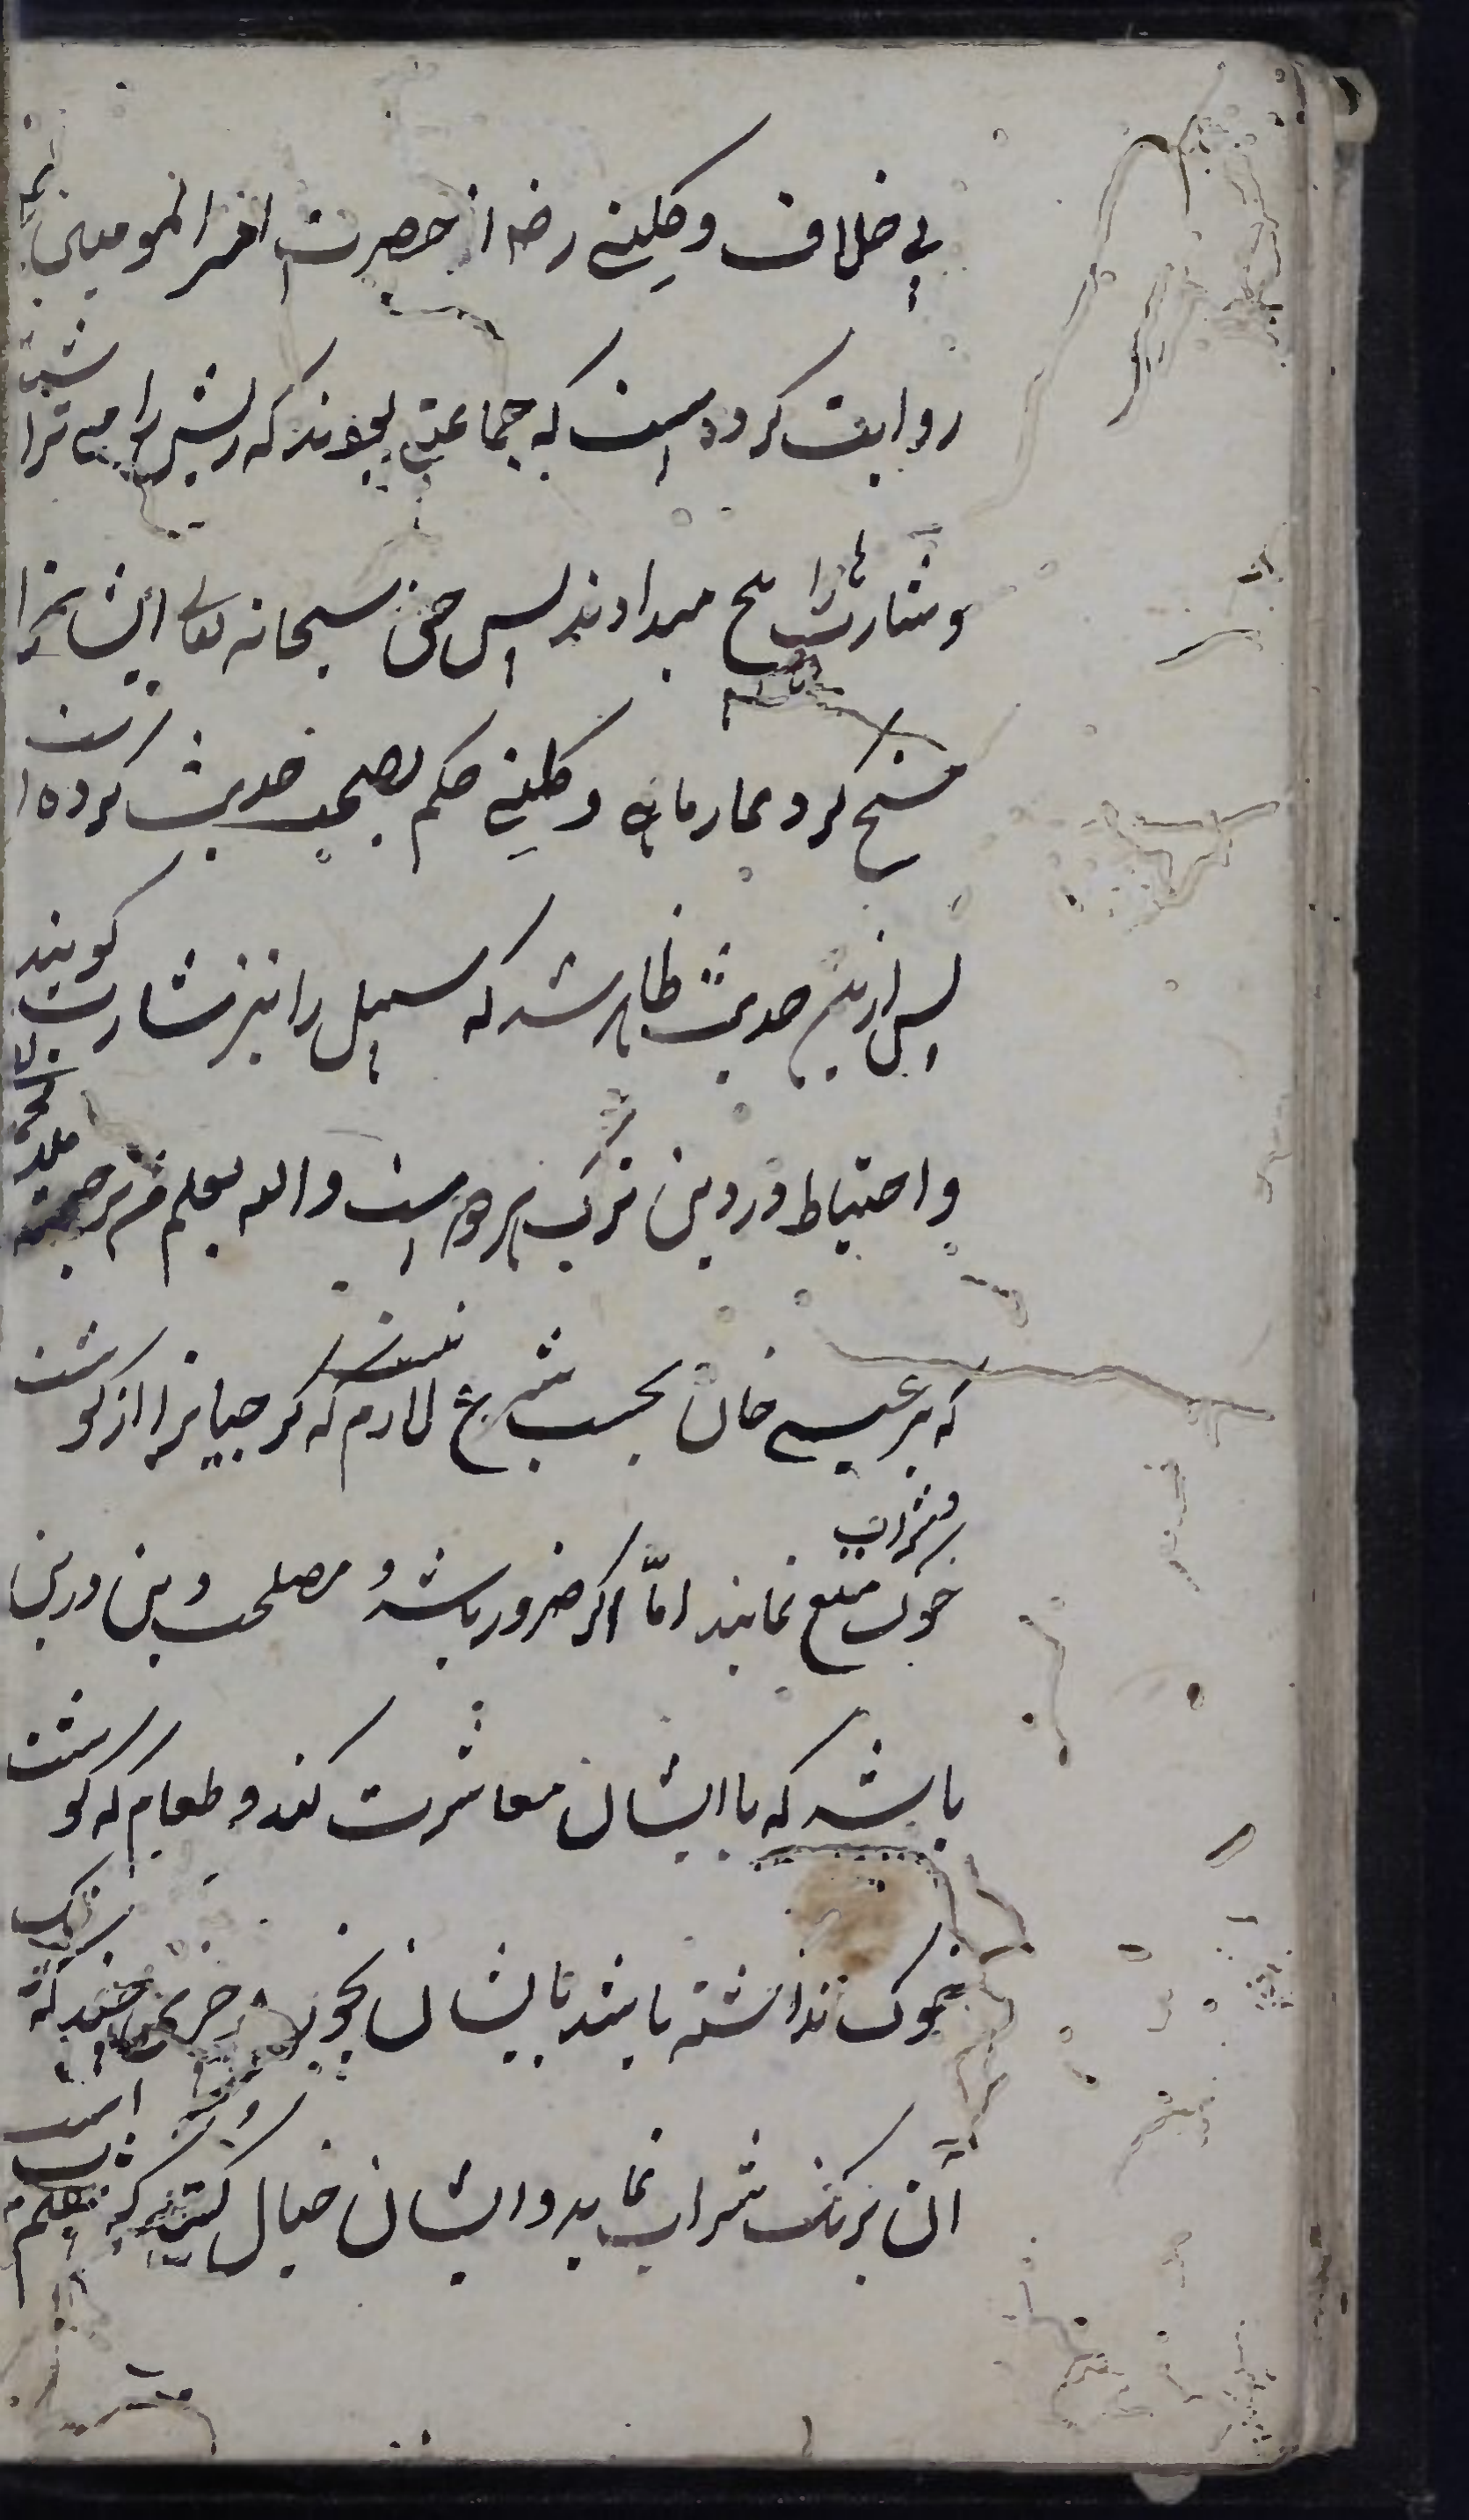 بی خلاف و کلینی رضه از حضرت امیر المومنین
روایت کرده است که جماعتی بودند که ریش را می تراشیدند
و شارب را تاب میدادند پس حق سبحانه تعالی ایشانرا
مسخ کرد بمارماهی و کلینی حکم بصحت حدیث کرده است
پس ازین حدیث ظاهر شد که سبیل را نیز شارب گویند
و احتیاط در دین ترک هر دو است والله یعلم
که بر عیسی خان بحسب شرع لازم نیست که کرجیانرا از کوشت
خوک و شراب منع نمایند امّا اکر ضرور باشد و مصلحت دین درین
باشد که با ایشان معاشرت کند و طعام که کوشت
خوک نداشته باشد با ایشان بخورد و چیزی چند که رنک
آن برنک شراب نماید و ایشان خیال کنند که شراب است